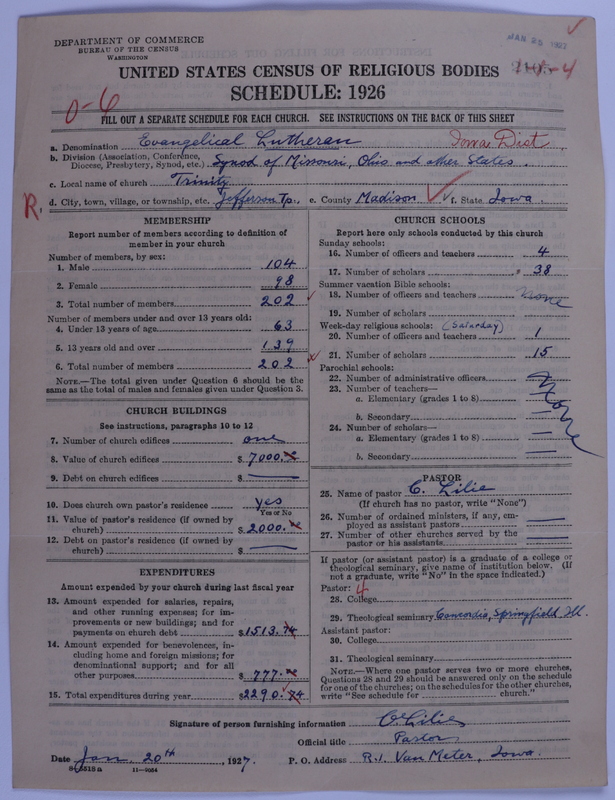 DEPARTMENT OF COMMERCE
BUREAU OF THE CENSUS
WASHINGTON
JAN 25 1927
UNITED STATES CENSUS OF RELIGIOUS BODIES
SCHEDULE: 1926
0-6
FILL OUT A SEPARATE SCHEDULE FOR EACH CHURCH. SEE INSTRUCTIONS ON THE BACK OF THIS SHEET
a. Denomination Evangelical Lutheran Iowa Dist.
b. Division (Association, Conference, Diocese, Presbytery, Synod, etc.) Synod of Missouri, Ohio and other States.
c. Local name of church Trinity
R. d. City, town, village, or township, etc. Jefferson Tp. e. County Madison f. State Iowa.
MEMBERSHIP
Report number of members according to definition of
member in your church
Number of members, by sex:
1. Male 104
2. Female 98
3. Total number of members 202
Number of members under and over 13 years old:
4. Under 13 years of age 63
5. 13 years old and over 139
6. Total number of members 202
NOTE.—The total given under Question 6 should be the
same as the total of males and females given under Question 3.
CHURCH BUILDINGS
See instructions, paragraphs 10 to 12
7. Number of church edifices one
8. Value of church edifices $ 7000.
9. Debt on church edifices $ —
10. Does church own pastor's residence yes
Yes or No
11. Value of pastor's residence (if owned by
church) $ 2000.
12. Debt on pastor's residence (if owned by
church) $ —
EXPENDITURES
Amount expended by your church during last fiscal year
13. Amount expended for salaries, repairs,
and other running expenses; for im-
provements or new buildings; and for
payments on church debt $ 1513.74
14. Amount expended for benevolences, in-
cluding home and foreign missions; for
denominational support; and for all
other purposes $ 777.
15. Total expenditures during year $ 2290.74
CHURCH SCHOOLS
Report here only schools conducted by this church
Sunday schools:
16. Number of officers and teachers 4
17. Number of scholars 38
Summer vacation Bible schools:
18. Number of officers and teachers none
19. Number of scholars
Week-day religious schools: (Saturday)
20. Number of officers and teachers 1
21. Number of scholars 15
Parochial schools:
22. Number of administrative officers —
23. Number of teachers—
a. Elementary (grades 1 to 8) None
b. Secondary —
24. Number of scholars—
a. Elementary (grades 1 to 8) —
b. Secondary —
PASTOR
25. Name of pastor C. Lilie
(If church has no pastor, write "None")
26. Number of ordained ministers, if any, em-
ployed as assistant pastors —
27. Number of other churches served by the
pastor or his assistants —
If pastor (or assistant pastor) is a graduate of a college or
theological seminary, give name of institution below. (If
not a graduate, write "No" in the space indicated.)
Pastor: 4
28. College
29. Theological seminary Concordia, Springfield Ill.
Assistant pastor:
30. College
31. Theological seminary
NOTE.—Where one pastor serves two or more churches,
Questions 28 and 29 should be answered only on the schedule
for one of the churches; on the schedules for the other churches,
write "See schedule for church."
Signature of person furnishing information C. Lilie
Official title Pastor
Date Jan. 20th, 1927. P. O. Address R.1. Van Meter, Iowa.
8-5518a 11—9054